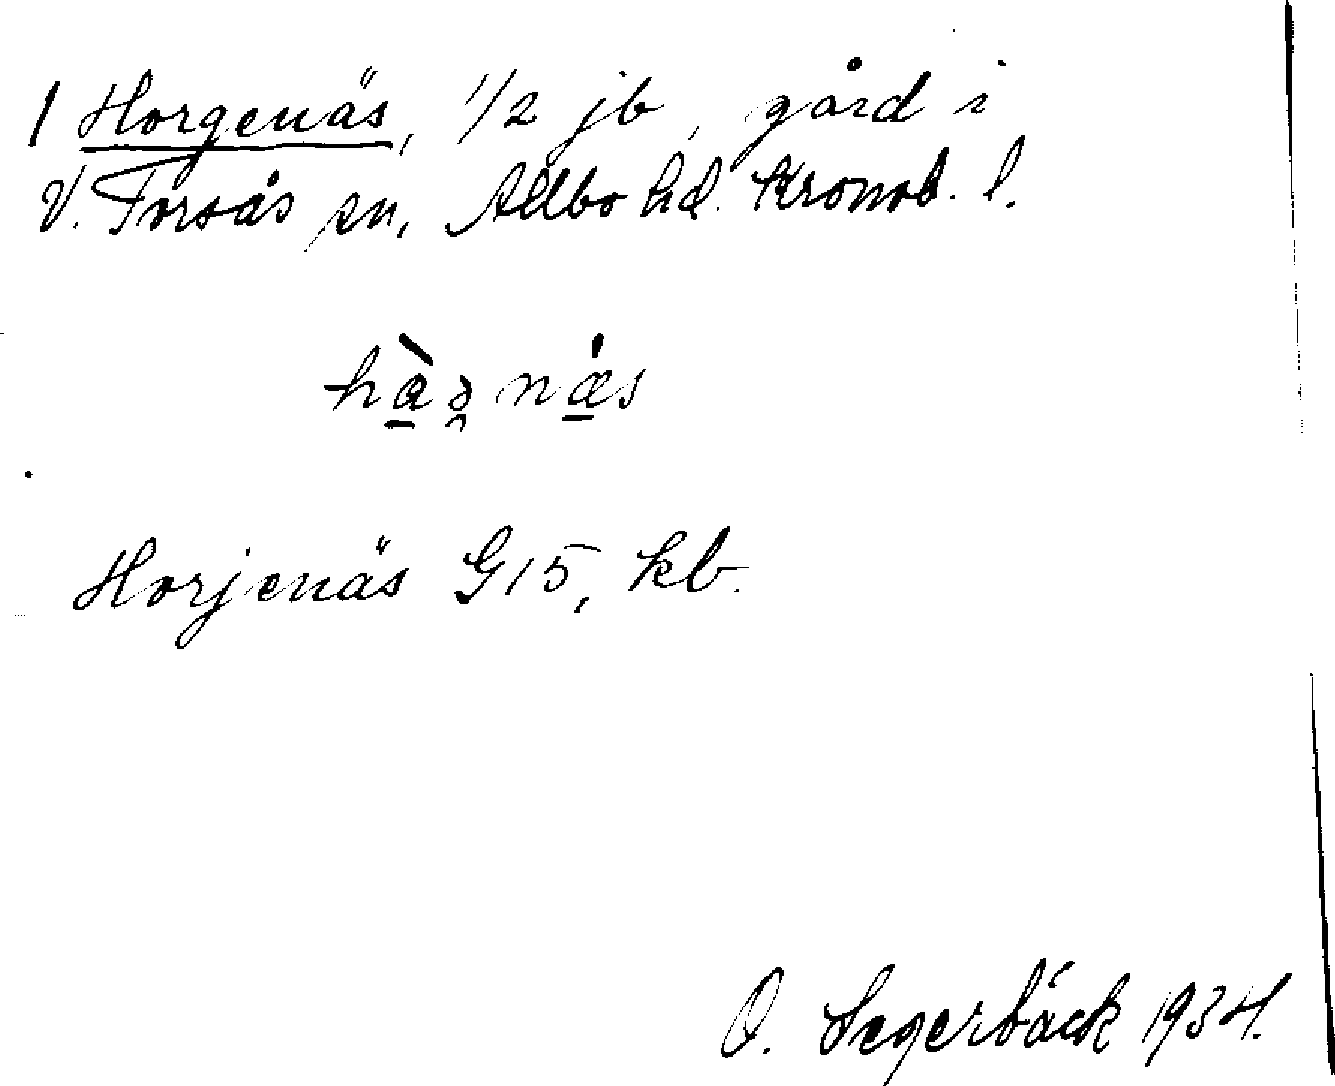 1 Horgenäs, 1/2 jb, gård i
V. Torsås sn, Allbo hd. Kronob. l.
hàə̯ næ̀s
Horjenäs G15, kb.
O. Segerbäck 1934.